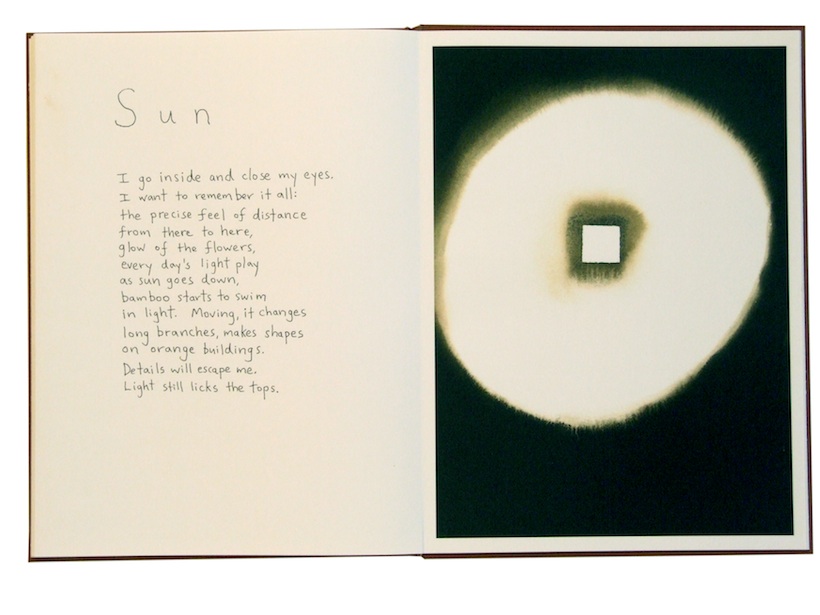 Sun
I go inside and close my eyes.
I want to remember it all:
the precise feel of distance
from there to here,
glow of the flowers,
every day's light play
as sun goes down,
bamboo starts to swim
in light. Moving, it changes
long branches, makes shapes
on orange buildings.
Details will escape me.
Light still licks the tops.